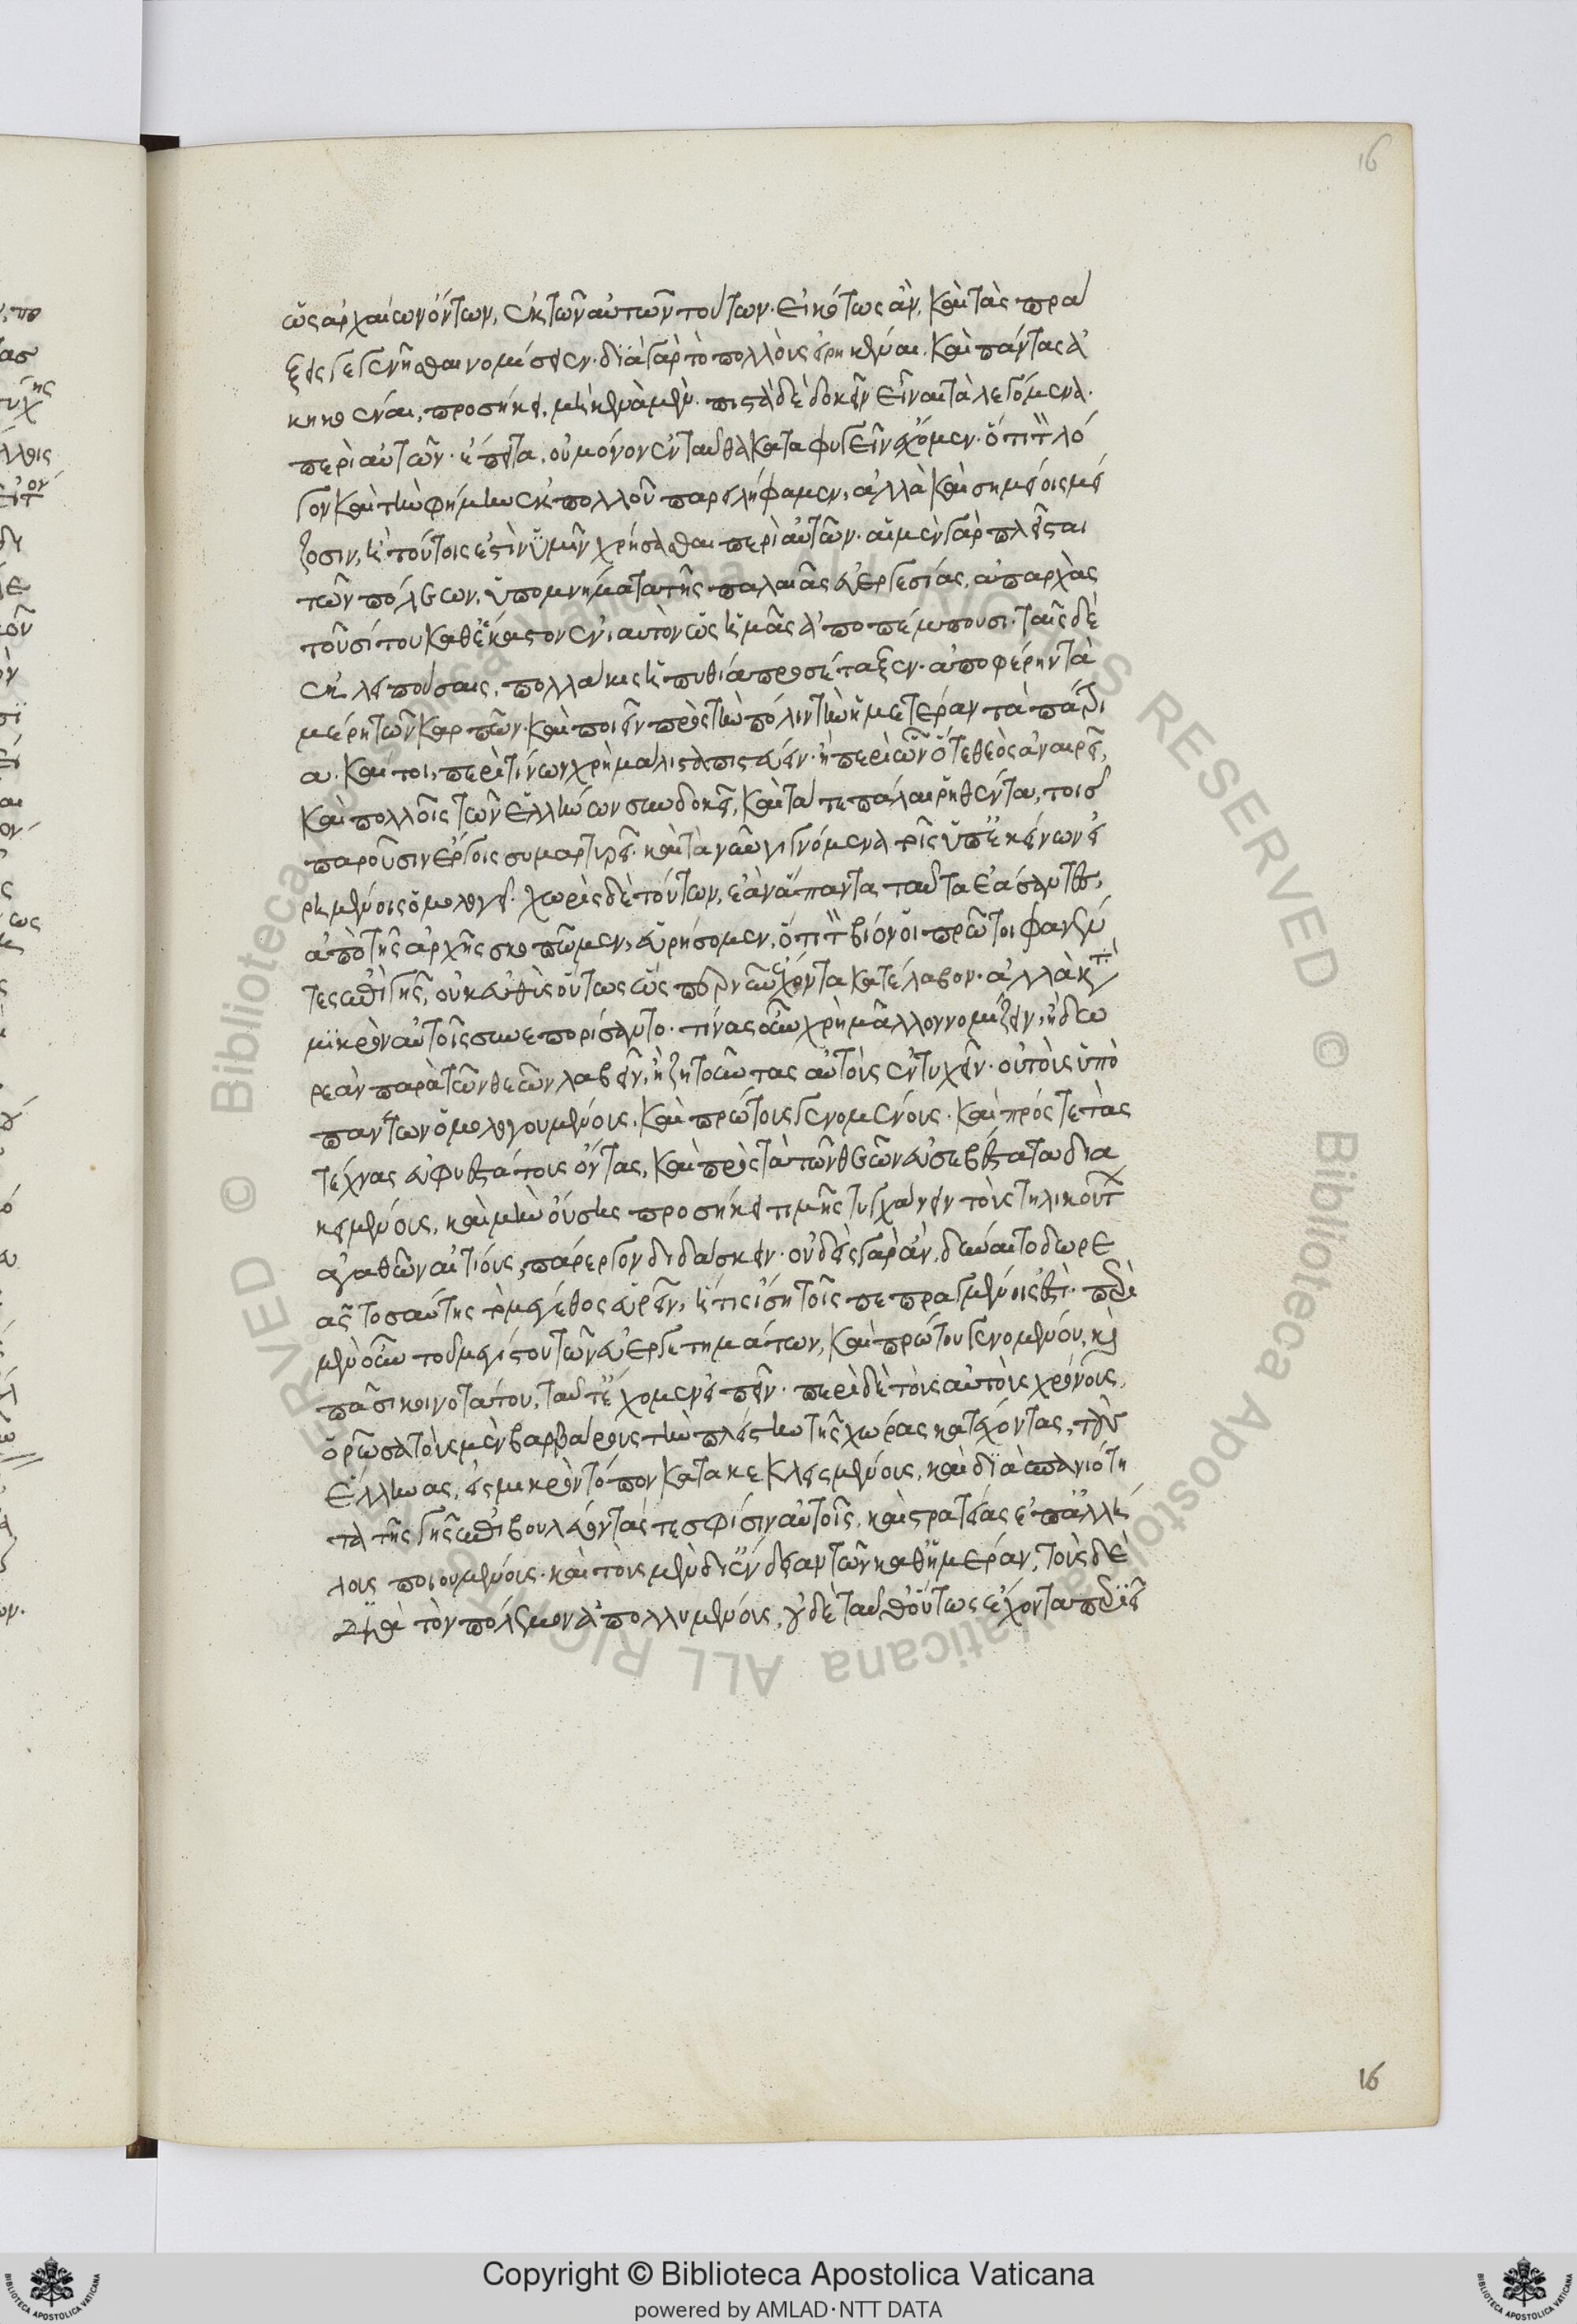 ὡς ἀρχαίων ὄντων, ἐκ τῶν αὐτῶν τούτων. εἰκότως ἂν, καὶ τὰς πρά
ξεις γεγενῆσθαι νομίσειεν· διὰ γὰρ τὸ πολλοὺς εἰρηκέναι. καὶ πάντας ἀ
κηκοέναι, προσήκει, μὴ καινὰ μὲν. πιστὰ δὲ δοκεῖν εἶναι τὰ λεγόμενα.
περὶ αὐτῶν. ἔπειτα, οὐ μόνον ἐνταῦθα καταφυγεῖν ἔχομεν. ὅτι τὸν λό
γον καὶ τὴν φήμην ἐκ πολλοῦ παρειλήφαμεν, ἀλλὰ καὶ σημείοις μεί
ζοσιν, ἢ τούτοις ἐστὶν ἡμῖν χρήσασθαι περὶ αὐτῶν. αἱ μὲν γὰρ πλεῖσται
τῶν πόλεων, ὑπομνήματα τῆς παλαιᾶς εὐεργεσίας, ἀπαρχὰς
τοῦ σίτου καθ' ἕκαστον ἐνιαυτὸν ὡς ἡμᾶς ἀποπέμπουσι. ταῖς δὲ
ἐκλειπούσαις, πολλάκις ἡ πυθία προσέταξεν. ἀποφέρειν τὰ
μέρη τῶν καρπῶν. καὶ ποιεῖν πρὸς τὴν πόλιν τὴν ἡμετέραν τὰ πάτρι
α. καί τοι, περὶ τίνων χρὴ μάλιστα πιστεύειν. ἢ περὶ ὧν ὅ τε θεὸς ἀναιρεῖ,
καὶ πολλοῖς τῶν ἑλλήνων συνδοκεῖ, καὶ τά τε πάλαι ῥηθέντα, τοῖς
παροῦσιν ἔργοις συμμαρτυρεῖ. καὶ τὰ νῦν γιγνόμενα τοῖς ὑπ' ἐκείνων εἰ
ρημένοις ὁμολογεῖ. χωρὶς δὲ τούτων, ἐὰν ἅπαντα ταῦτα ἐάσαντες,
ἀπὸ τῆς ἀρχῆς σκοπῶμεν, εὑρήσομεν, ὅτι τὸν βίον οἱ πρῶτοι φανέν
τες ἐπὶ γῆς, οὐκ εὐθὺς οὕτως ὥσπερ νῦν ἔχοντα κατέλαβον. ἀλλὰ κατὰ
μικρὸν αὐτοῖς συνεπορίσαντο. τίνας οὖν χρὴ μᾶλλον νομίζειν, ἢ δω
ρεὰν παρὰ τῶν θεῶν λαβεῖν, ἢ ζητοῦντας αὐτοὺς ἐντυχεῖν. οὐ τοὺς ὑπὸ
πάντων ὁμολογουμένους, καὶ πρώτους γενομένους. καὶ πρός τε τὰς
τέχνας εὐφυεστάτους ὄντας, καὶ πρὸς τὰ τῶν θεῶν εὐσεβέστατα δια
κειμένους, καὶ μὴν ὅσης προσήκει τιμῆς τυγχάνειν τοὺς τηλικούτων
ἀγαθῶν αἰτίους, πάρεργον διδάσκειν. οὐδεὶς γὰρ ἂν, δύναιτο δωρε
ᾶς τοσαύτης τὸ μέγεθος εὑρεῖν, ἥ τις ἴση τοῖς πεπραγμένοις ἐστί. περὶ
μὲν οὖν τοῦ μεγίστου τῶν εὐεργετημάτων, καὶ πρώτου γενομένου, καὶ
πᾶσι κοινοτάτου, ταῦτ' ἔχομεν εἰπεῖν. περὶ δὲ τοὺς αὐτοὺς χρόνους,
ὁρῶσα τοὺς μὲν βαρβάρους τὴν πλείστην τῆς χώρας κατέχοντας, τοὺς δ'
ἕλληνας, εἰς μικρὸν τόπον κατακεκλεισμένους, καὶ διὰ σπανιότη
τα τῆς γῆς ἐπιβουλεύοντάς τε σφίσιν αὐτοῖς, καὶ στρατείας ἐπ' ἀλλή
λους ποιουμένους. καὶ τοὺς μὲν δι' ἔνδειαν τῶν καθ' ἡμέραν, τοὺς δὲ
διὰ τὸν πόλεμον ἀπολλυμένους, οὐδὲ ταῦθ' οὕτως ἔχοντα περιεῖ
16
16
Copyright © Biblioteca Apostolica Vaticana
powered by AMLAD·NTT DATA